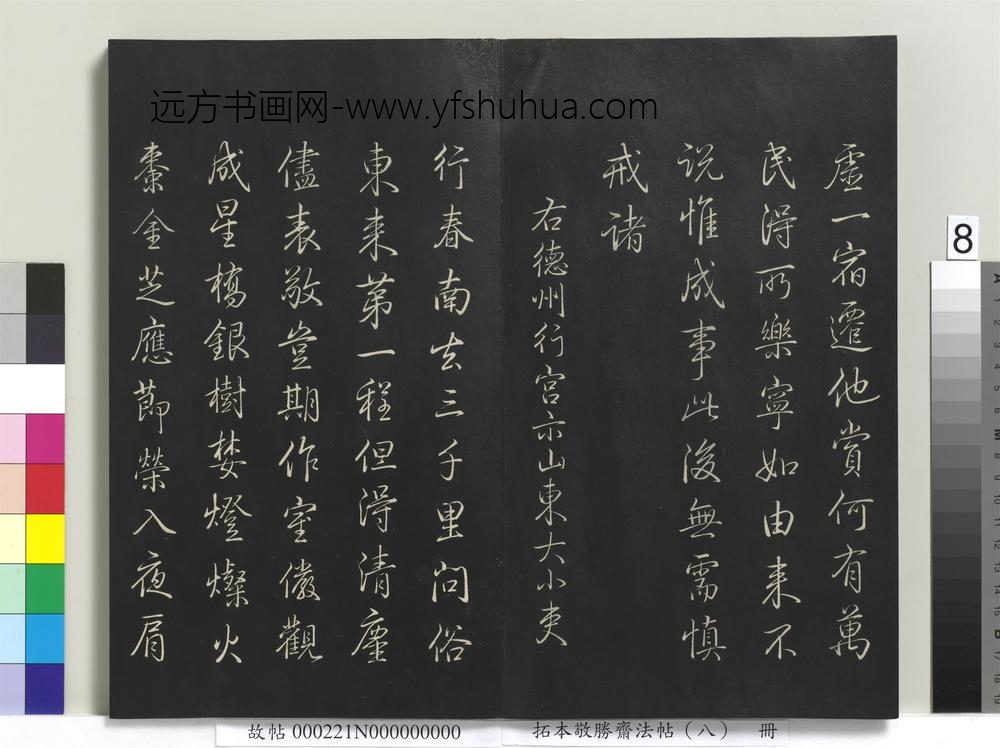 远方书画网-www.yfshuhua.com
虛一宿遷他賞何有萬
民得所樂寧如由來不
說惟成事此後無需慎
戒諸
右德州行宮示山東大小吏
行春南去三千里問俗
東來第一程但得清塵
儘表敬豈期作室儌觀
成星橋銀樹婪燈燦火
棗金芝應節榮入夜肩
8
故帖 000221N000000000
拓本敬勝齋法帖（八） 冊